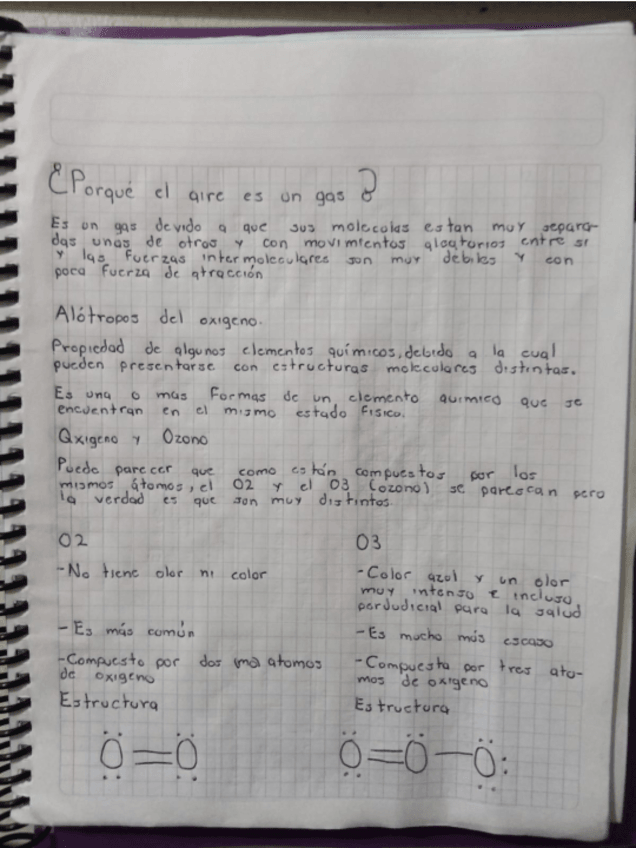 ¿Porqué el aire es un gas?
Es un gas devido a que sus moleculas estan muy separa-
das unas de otras y con movimientos aloatorios entre si
y las fuerzas intermoleculares son muy debiles y con
poca fuerza de atracción
Alótropos del oxigeno.
Propiedad de algunos elementos químicos, debido a la cual
pueden presentarse con estructuras moleculares distintas.
Es una o mas formas de un elemento quimico que se
encuentran en el mismo estado fisico.
Oxigeno y Ozono
Puede parecer que como están compuestos por los
mismos átomos, el O2 y el O3 (ozono) se parescan pero
la verdad es que son muy distintos.
O2
-No tiene olor ni color
-Es más común
-Compuesto por dos atomos
de oxigeno
Estructura
O=O
O3
-Color azul y un olor
muy intenso e incluso
perjudicial para la salud
-Es mucho más escaso
-Compuesto por tres ato-
mos de oxigeno
Estructura
O=O-O